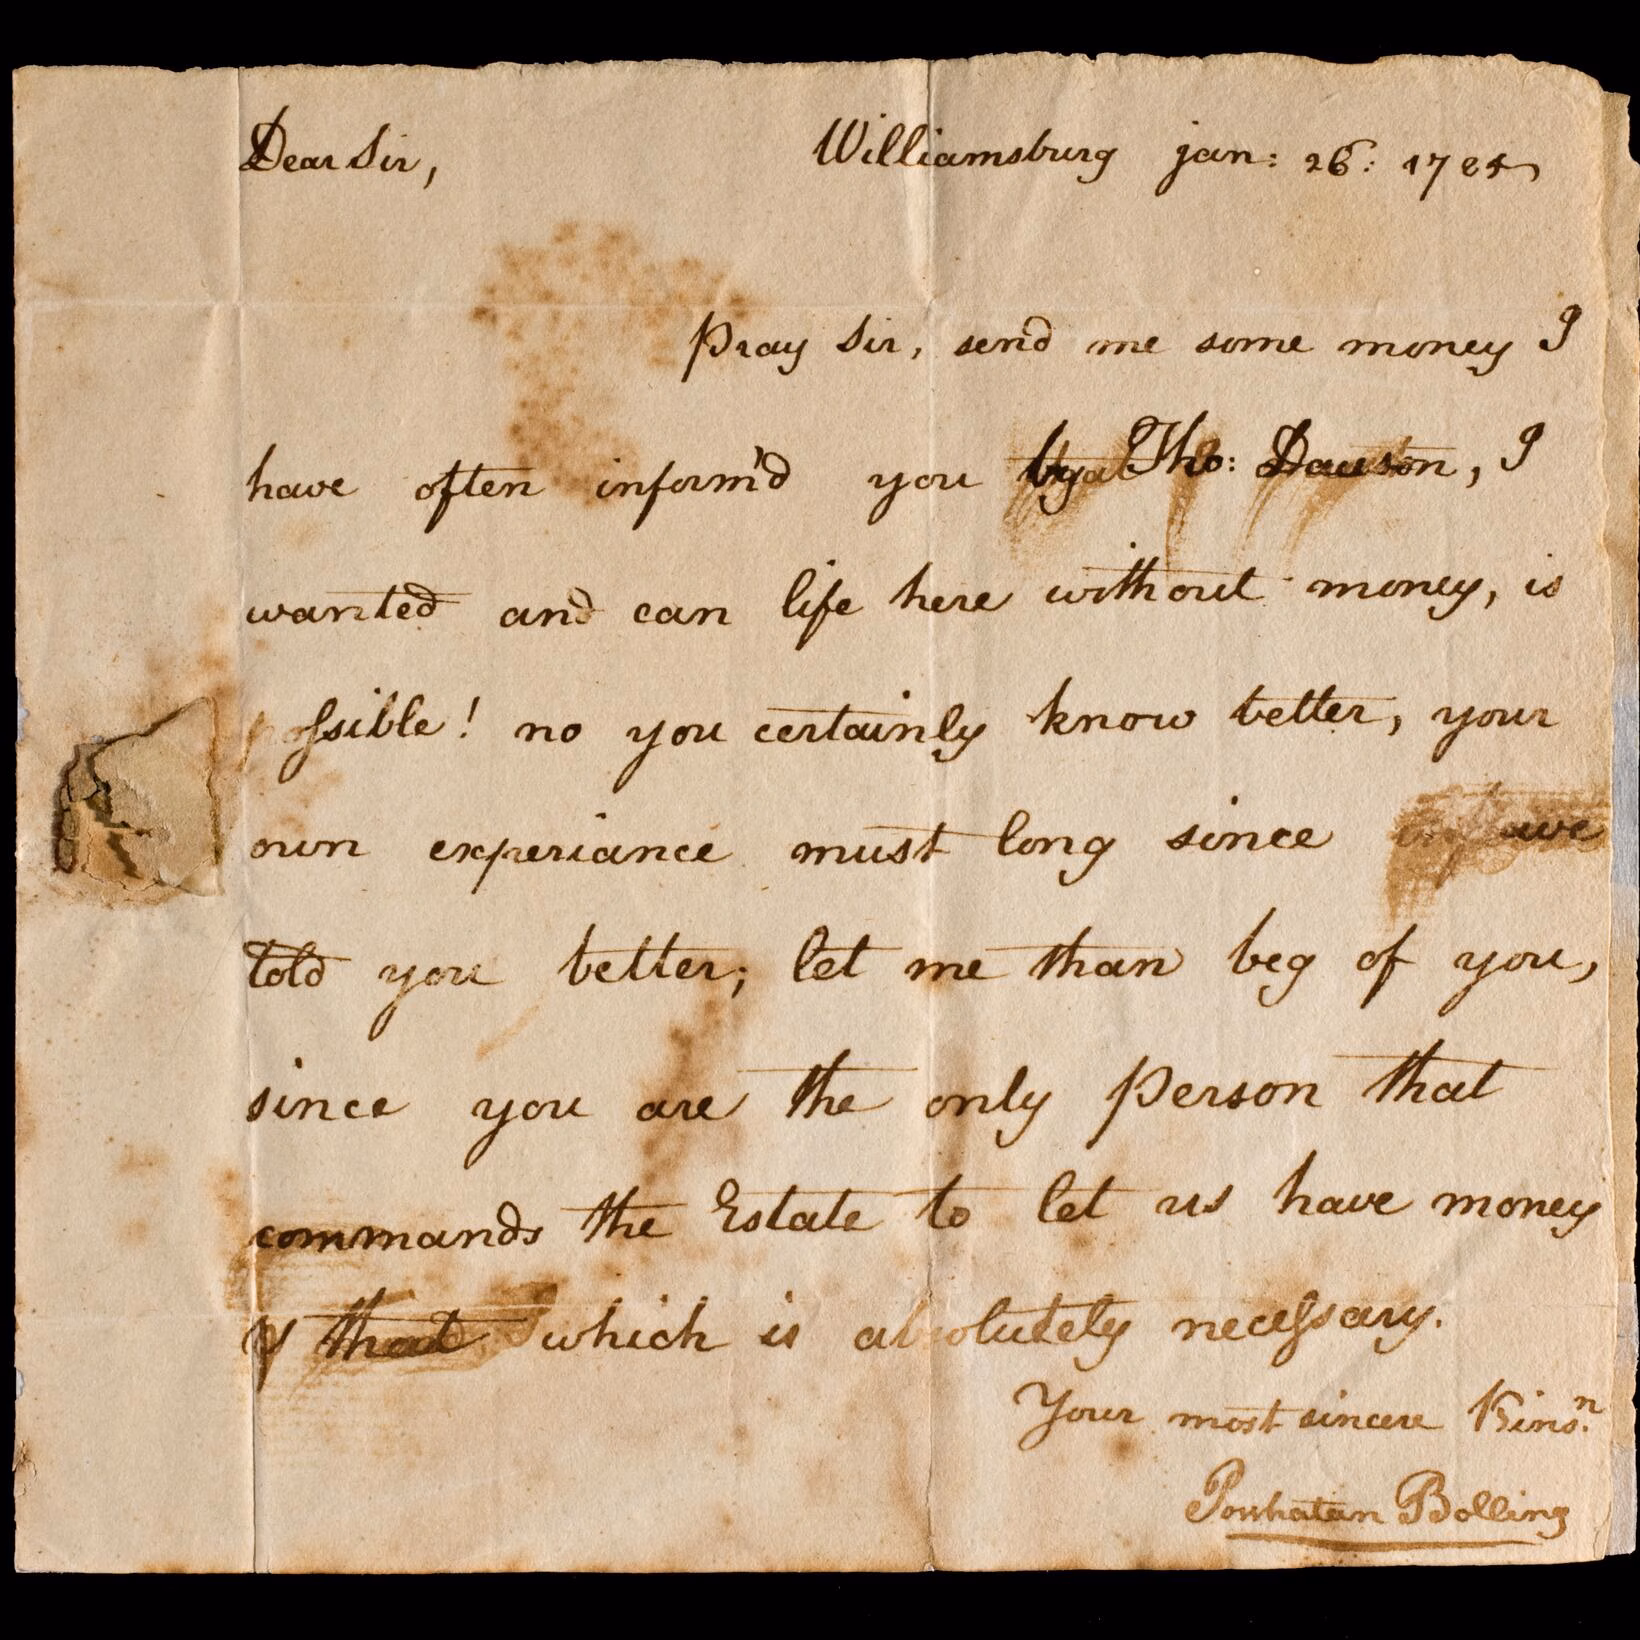 Dear Sir, Williamsburg jan: 26: 1785
Pray Sir, send me some money I
have often inform'd you by Tho: Dawson, I
wanted and can life here without money, is
possible! no you certainly know better, your
own experiance must long since have
told you better; let me than beg of you,
since you are the only Person that
commands the Estate to let us have money
that which is absolutely necessary.
Your most sincere Kinsn.
Powhatan Bolling